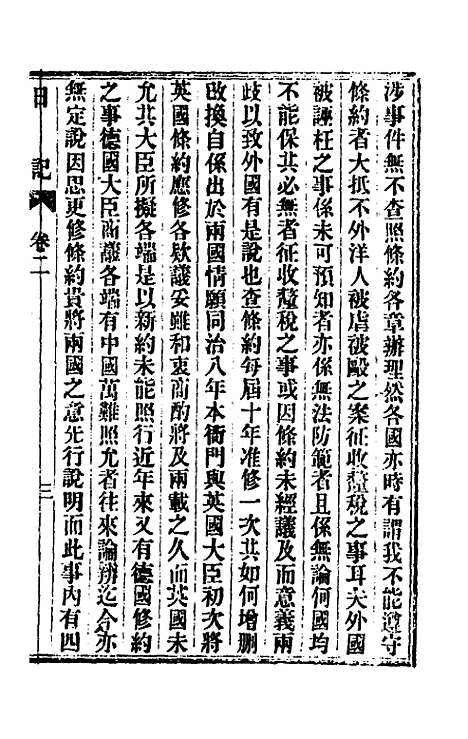 涉事件無不查照條約各章辦理然各國亦時有謂我不能遵守
條約者大抵不外洋人被虐被毆之案征收釐稅之事耳夫外國
被誣枉之事係未可預知者亦係無法防範者且係無論何國均
不能保其必無者征收釐稅之事或因條約未經議及而意義兩
歧以致外國有是說也查條約每屆十年准修一次其如何增刪
改換自係出於兩國情願同治八年本衙門與英國大臣初次將
英國條約應修各欵議妥雖和衷商酌將及兩載之久而英國未
允其大臣所擬各端是以新約未能照行近年來又有德國修約
之事德國大臣商議各端有中國萬難照允者往來論辨迄今亦
無定說因思更修條約貴將兩國之意先行說明而此事內有四
日記 卷二 三